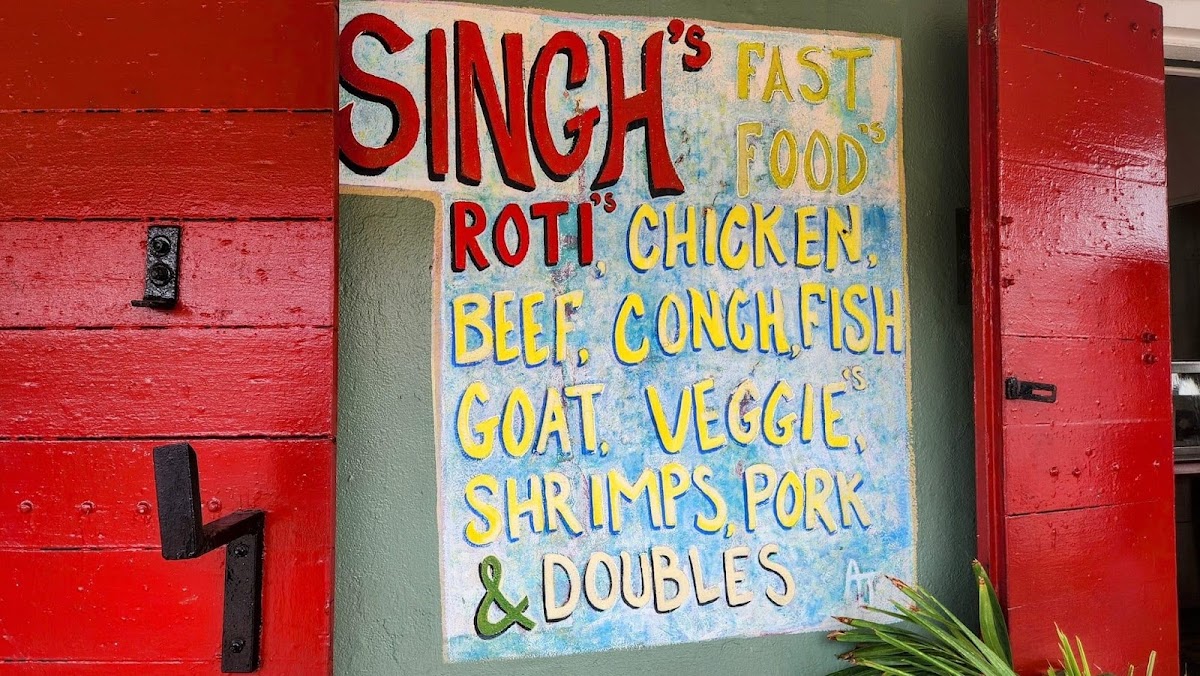 SINGH's FAST
FOOD's
ROTI's, CHICKEN,
BEEF, CONCH, FISH
GOAT, VEGGIE's,
SHRIMPS, PORK
& DOUBLES